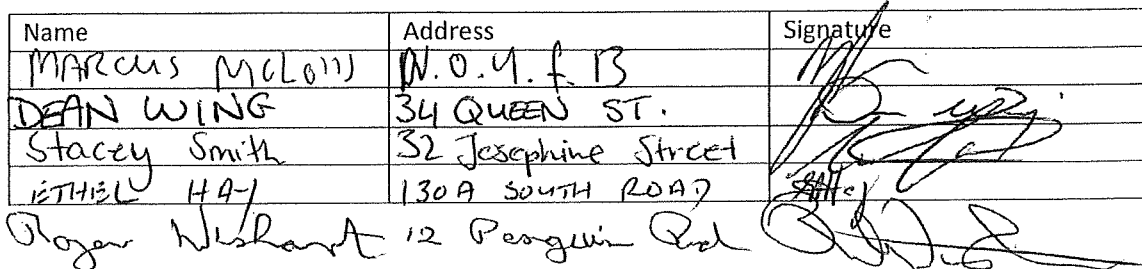 Name Address Signature
MARCUS N.O.Y.f.B
DEAN WING 34 QUEEN ST.
Stacey Smith 32 Josephine Street
ETHEL HAY 130A SOUTH ROAD
Roger Wishart 12 Penguin Rd